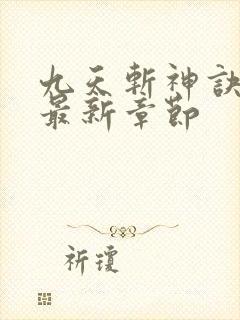 九天斬神訣
最新章節
祈瓊